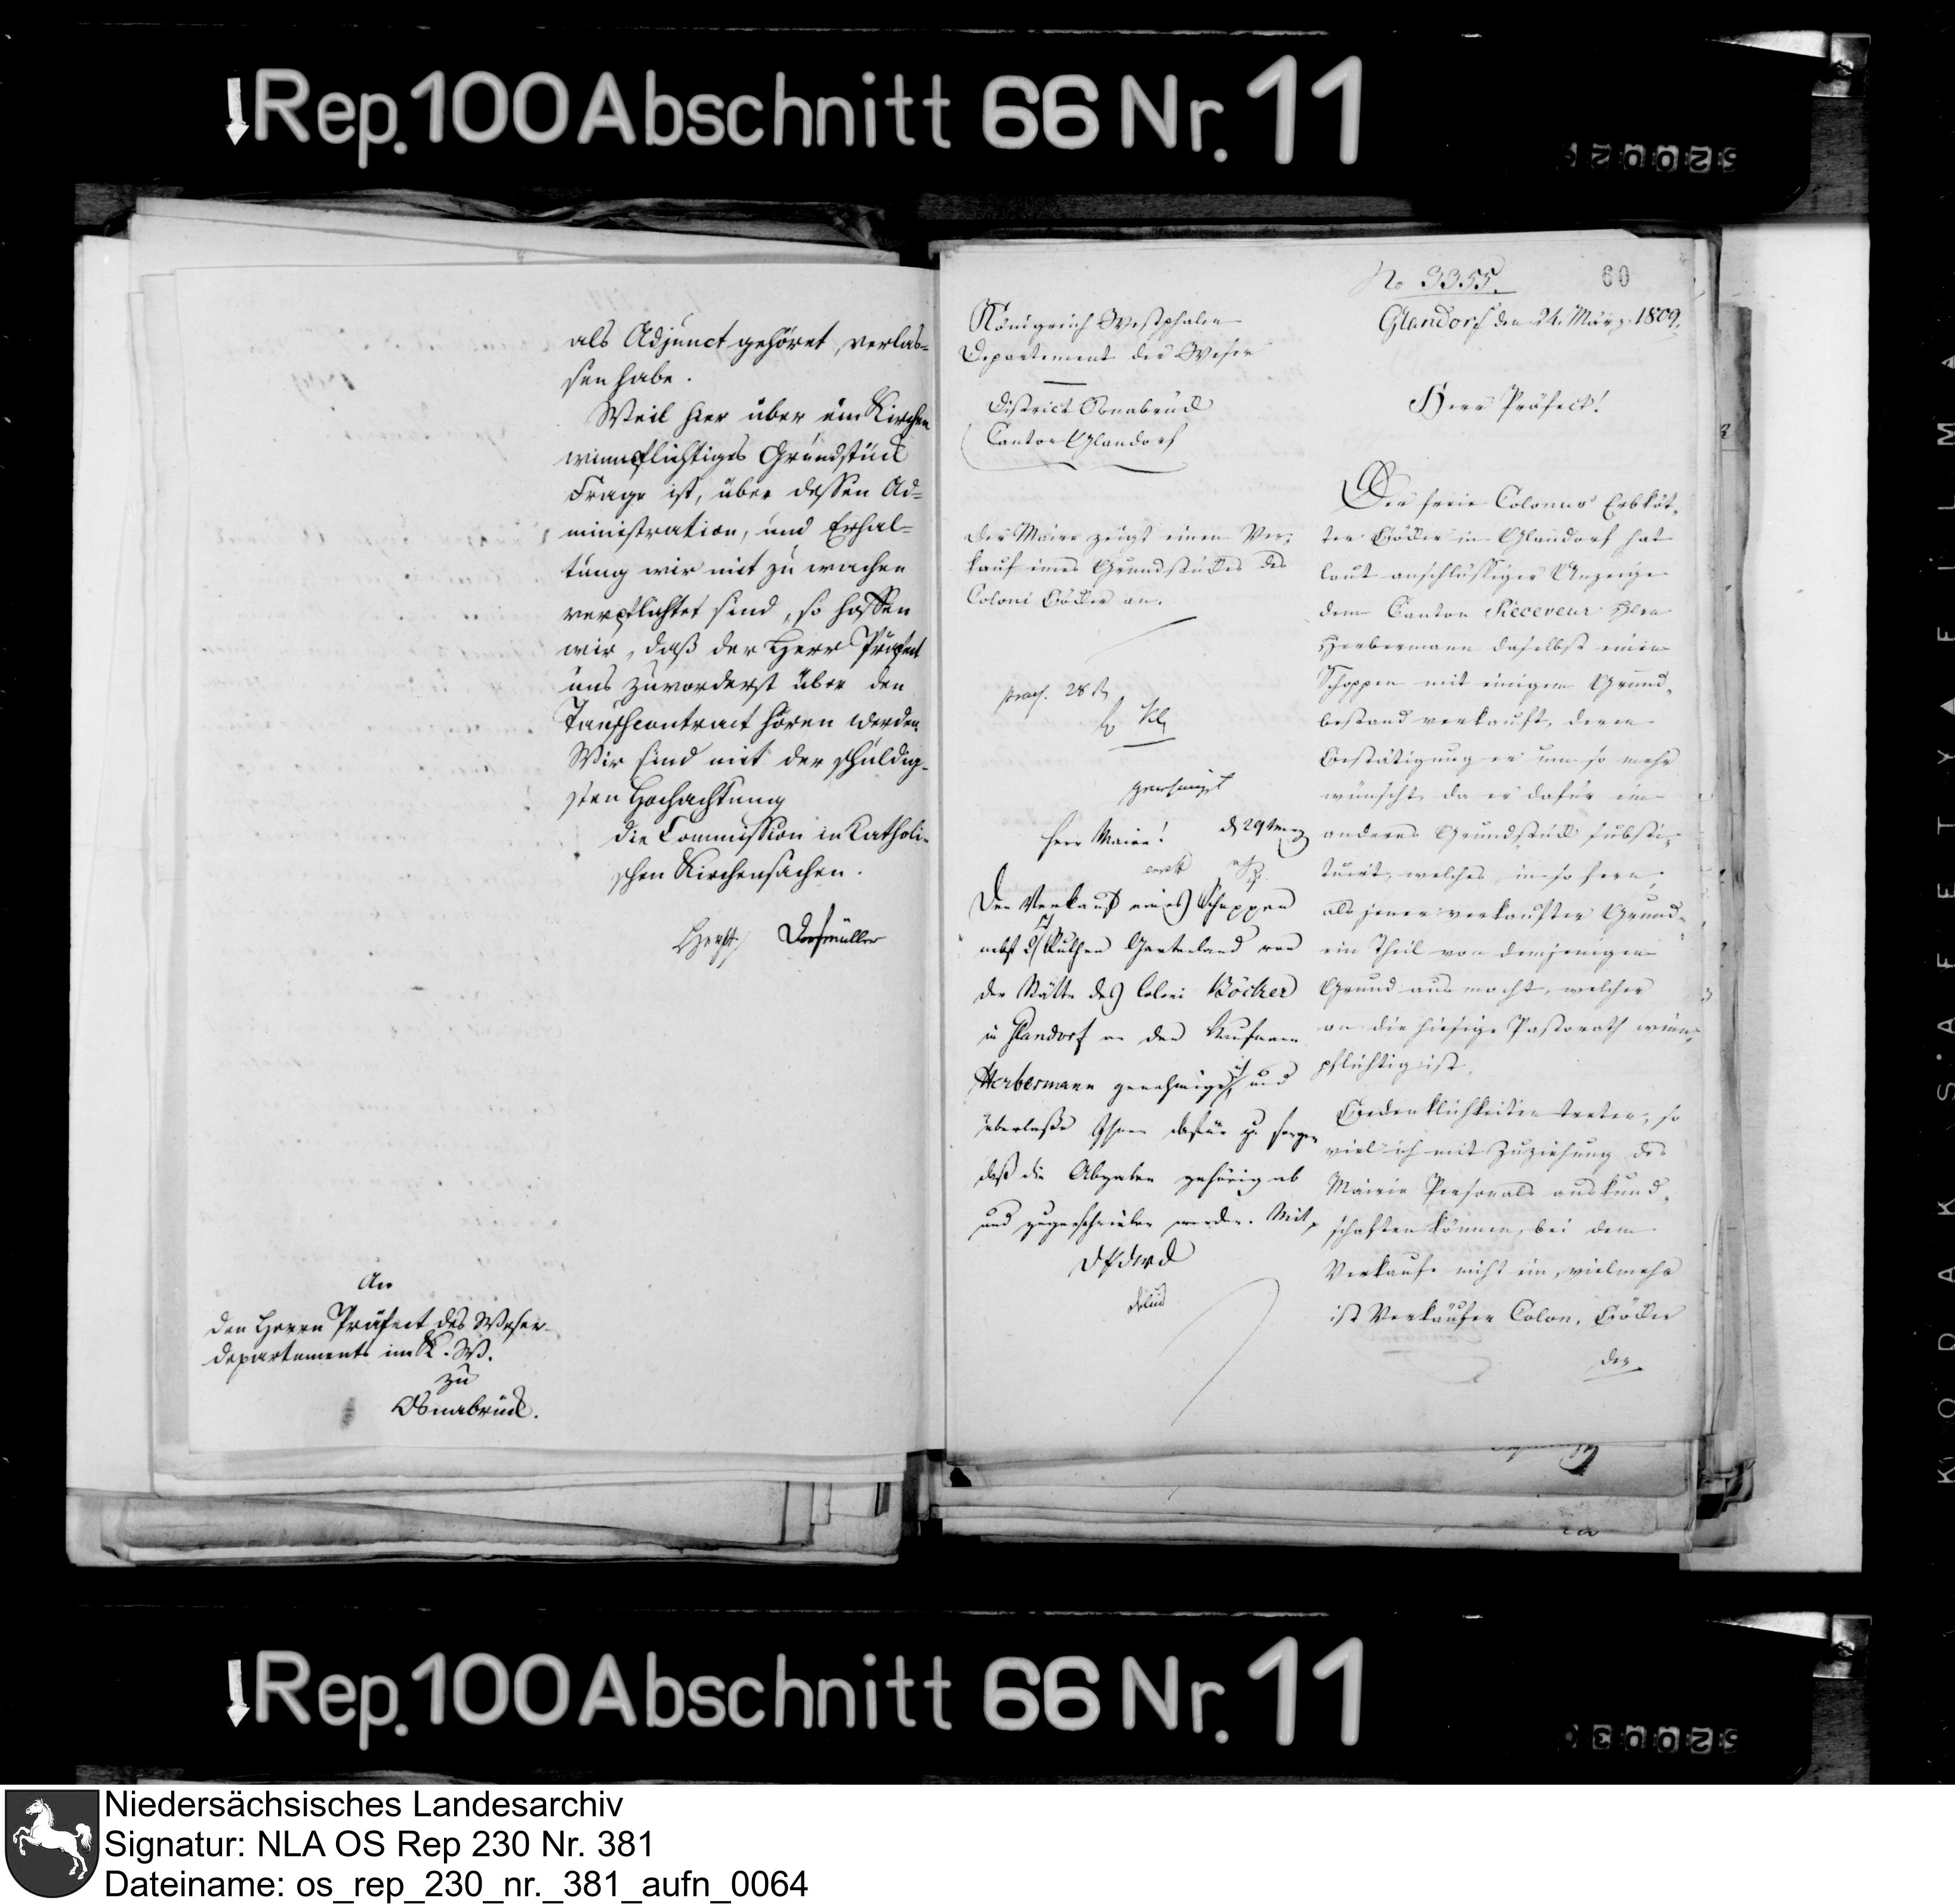 Rep. 100 Abschnitt 66 Nr. 11
als Adjunct gehöret, verlas-
sen habe.
Weil hier über ein Kirchen
winnpflichtiges Grundstück
Frage ist, über dessen Ad-
ministration, und Erhal-
tung wir mit zu wachen
verpflichtet sind, so hoffen
wir, daß der Herr Präfect
uns zuvorderst über den
Tauschcontract hören werden.
Wir sind mit der schuldig-
sten Hochachtung
die Commission in Katholi-
schen Kirchensachen.
Dorfmüller
An
den Herrn Präfect des Weser-
departements im K. W.
zu
Osnabrück.
No 3355.
60
Königreich Westphalen
Departement der Weser
District Osnabrück
Canton Glandorf
Glandorf den 24. März 1809.
Herr Präfect!
Der Maire zeigt einen Ver-
kauf eines Grundstückes des
Coloni Böcker an.
praes. 28
genehmigt
Herr Maire!
d 29 März
Den Verkauf eines Schoppen
nebst Ruthen Gartenland von
der Stätte des Coloni Böcker
in Glandorf an den Kaufmann
Herbermann genehmige ich, und
überlasse Ihnen dafür zu sorgen
daß die Abgaben gehörig ab
und zugeschrieben werden. Mit
Der freie Colonus Erbköt-
ter Böcker in Glandorf hat
laut anschlüssiger Anzeige
dem Canton Receveur Hrn
Herbermann daselbst einen
Schoppen mit einigem Grund-
bestand verkauft, deren
Bestätigung er um so mehr
wünscht, da er dafür ein
anderes Grundstück substi-
tuirt, welches in so fern,
als jener verkaufter Grund
ein Theil von demjenigen
Grund ausmacht, welcher
an die hiesige Pastorath winn-
pflichtig ist.
Bedenklichkeiten treten, so
viel ich mit Zuziehung des
Mairie Personals auskund-
schaften können, bei dem
Verkaufe nicht ein, vielmehr
ist Verkäufer Colon. Böcker
der
Rep. 100 Abschnitt 66 Nr. 11
KODAK SAFETY FILM
Niedersächsisches Landesarchiv
Signatur: NLA OS Rep 230 Nr. 381
Dateiname: os_rep_230_nr._381_aufn_0064